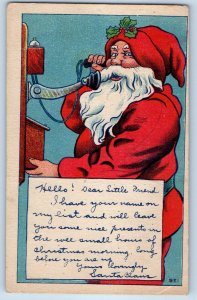 Hello! Dear Little Friend
I have your name on
my list and will leave
you some nice presents in
the wee small hours of
Christmas morning long
before you are up
Yours lovingly
Santa Claus